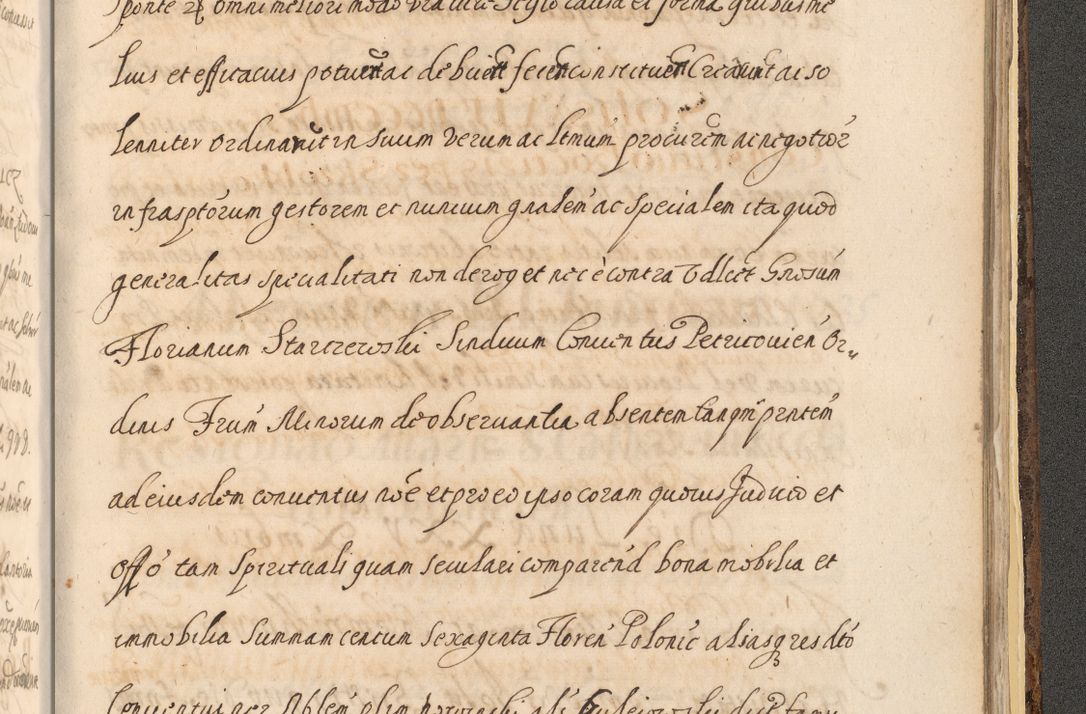 sponte et omni meliori modo via iure Stylo causa et forma quibus me
lius et efficacius potuit ac debuit fecit constituit Creavit ac so
lenniter ordinavit in suum verum ac ltmum procurem ac negotior
infrasptorum gestorem et nuncium gnalem ac specialem ita quod
generalitas specialitati non deroget nec e contra Vdlcet Gnosum
Florianum Starczewski Sindicum Conventus Petricovien Or„
dinis Frum Minorum de observantia absentem tanqm prntem
ad eiusdem conventus noe et pro eo ipso coram quovis Judicio et
offo tam Spirituali quam seculari comparend bona mobilia et
immobilia Summam centum sexaginta Floren Polonic alias qres dto
Conventui per Nblem olim